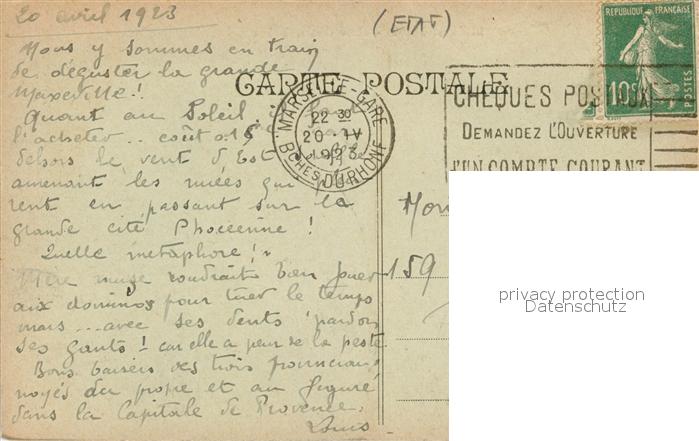 20 avril 1923
(ETAT)
Nous y sommes en train
de déguster la grande
Maxéville!
Quant au Soleil
l'acheter... coût 0.15
dehors le vent d'Est
amenant les nuées qui
rent en passant sur la
grande cité Phocéenne!
Quelle métaphore!
muse voudrait bien jouer
aux dominos pour tuer le temps
mais... avec ses dents pardon
ses gants! car elle a peur de la peste
Bons baisers des trois
noyés du propre et au figuré
dans la Capitale de Provence.
Louis
CARTE POSTALE
MARSEILLE-GARE
22 30
20 - IV
1923
BCHES DU RHONE
CHÈQUES POSTAUX
DEMANDEZ L'OUVERTURE
D'UN COMPTE COURANT
REPUBLIQUE FRANÇAISE
10c
POSTES
Mon
159
privacy protection
Datenschutz